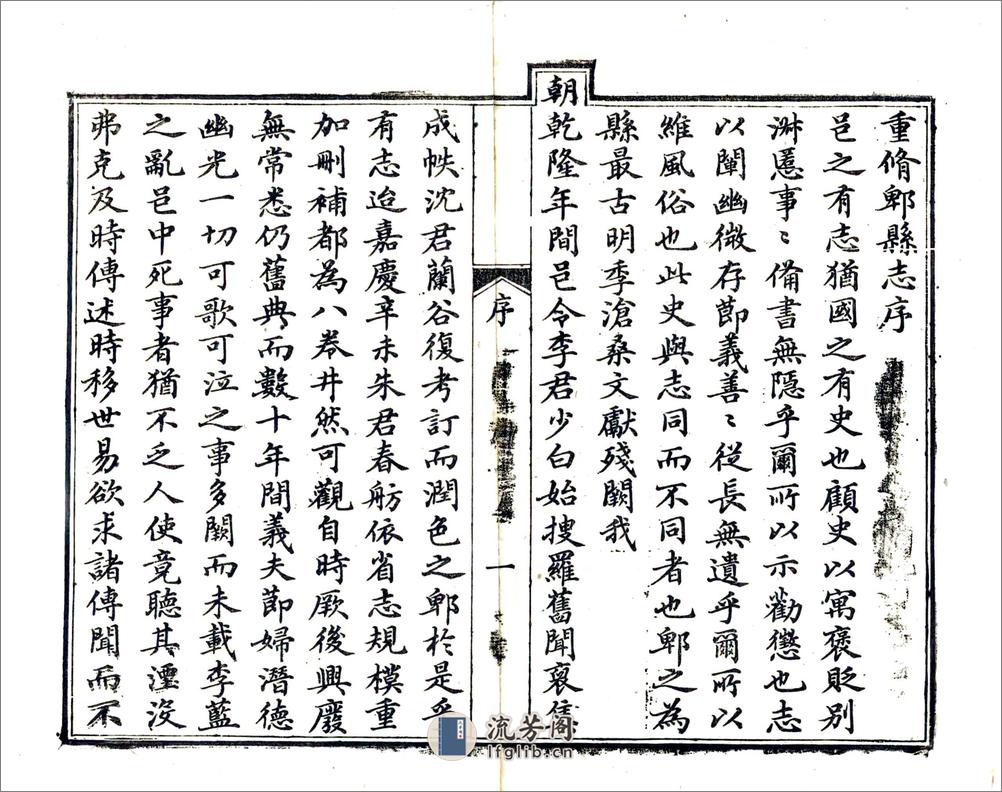 重脩郫縣志序
邑之有志猶國之有史也顧史以寓褒貶別
淑慝事〻備書無隱乎爾所以示勸懲也志
以闡幽微存節義善〻從長無遺乎爾所以
維風俗也此史與志同而不同者也郫之為
縣最古明季滄桑文獻殘闕我
朝乾隆年間邑令李君少白始搜羅舊聞裒集
序
一
成帙沈君蘭谷復考訂而潤色之郫於是乎
有志迨嘉慶辛未朱君春舫依省志規模重
加刪補都為八卷井然可觀自時厥後興廢
無常悉仍舊典而數十年間義夫節婦潛德
幽光一切可歌可泣之事多闕而未載李藍
之亂邑中死事者猶不乏人使竟聽其湮沒
弗克及時傳述時移世易欲求諸傳聞而不
流芳閣
lfglib.cn